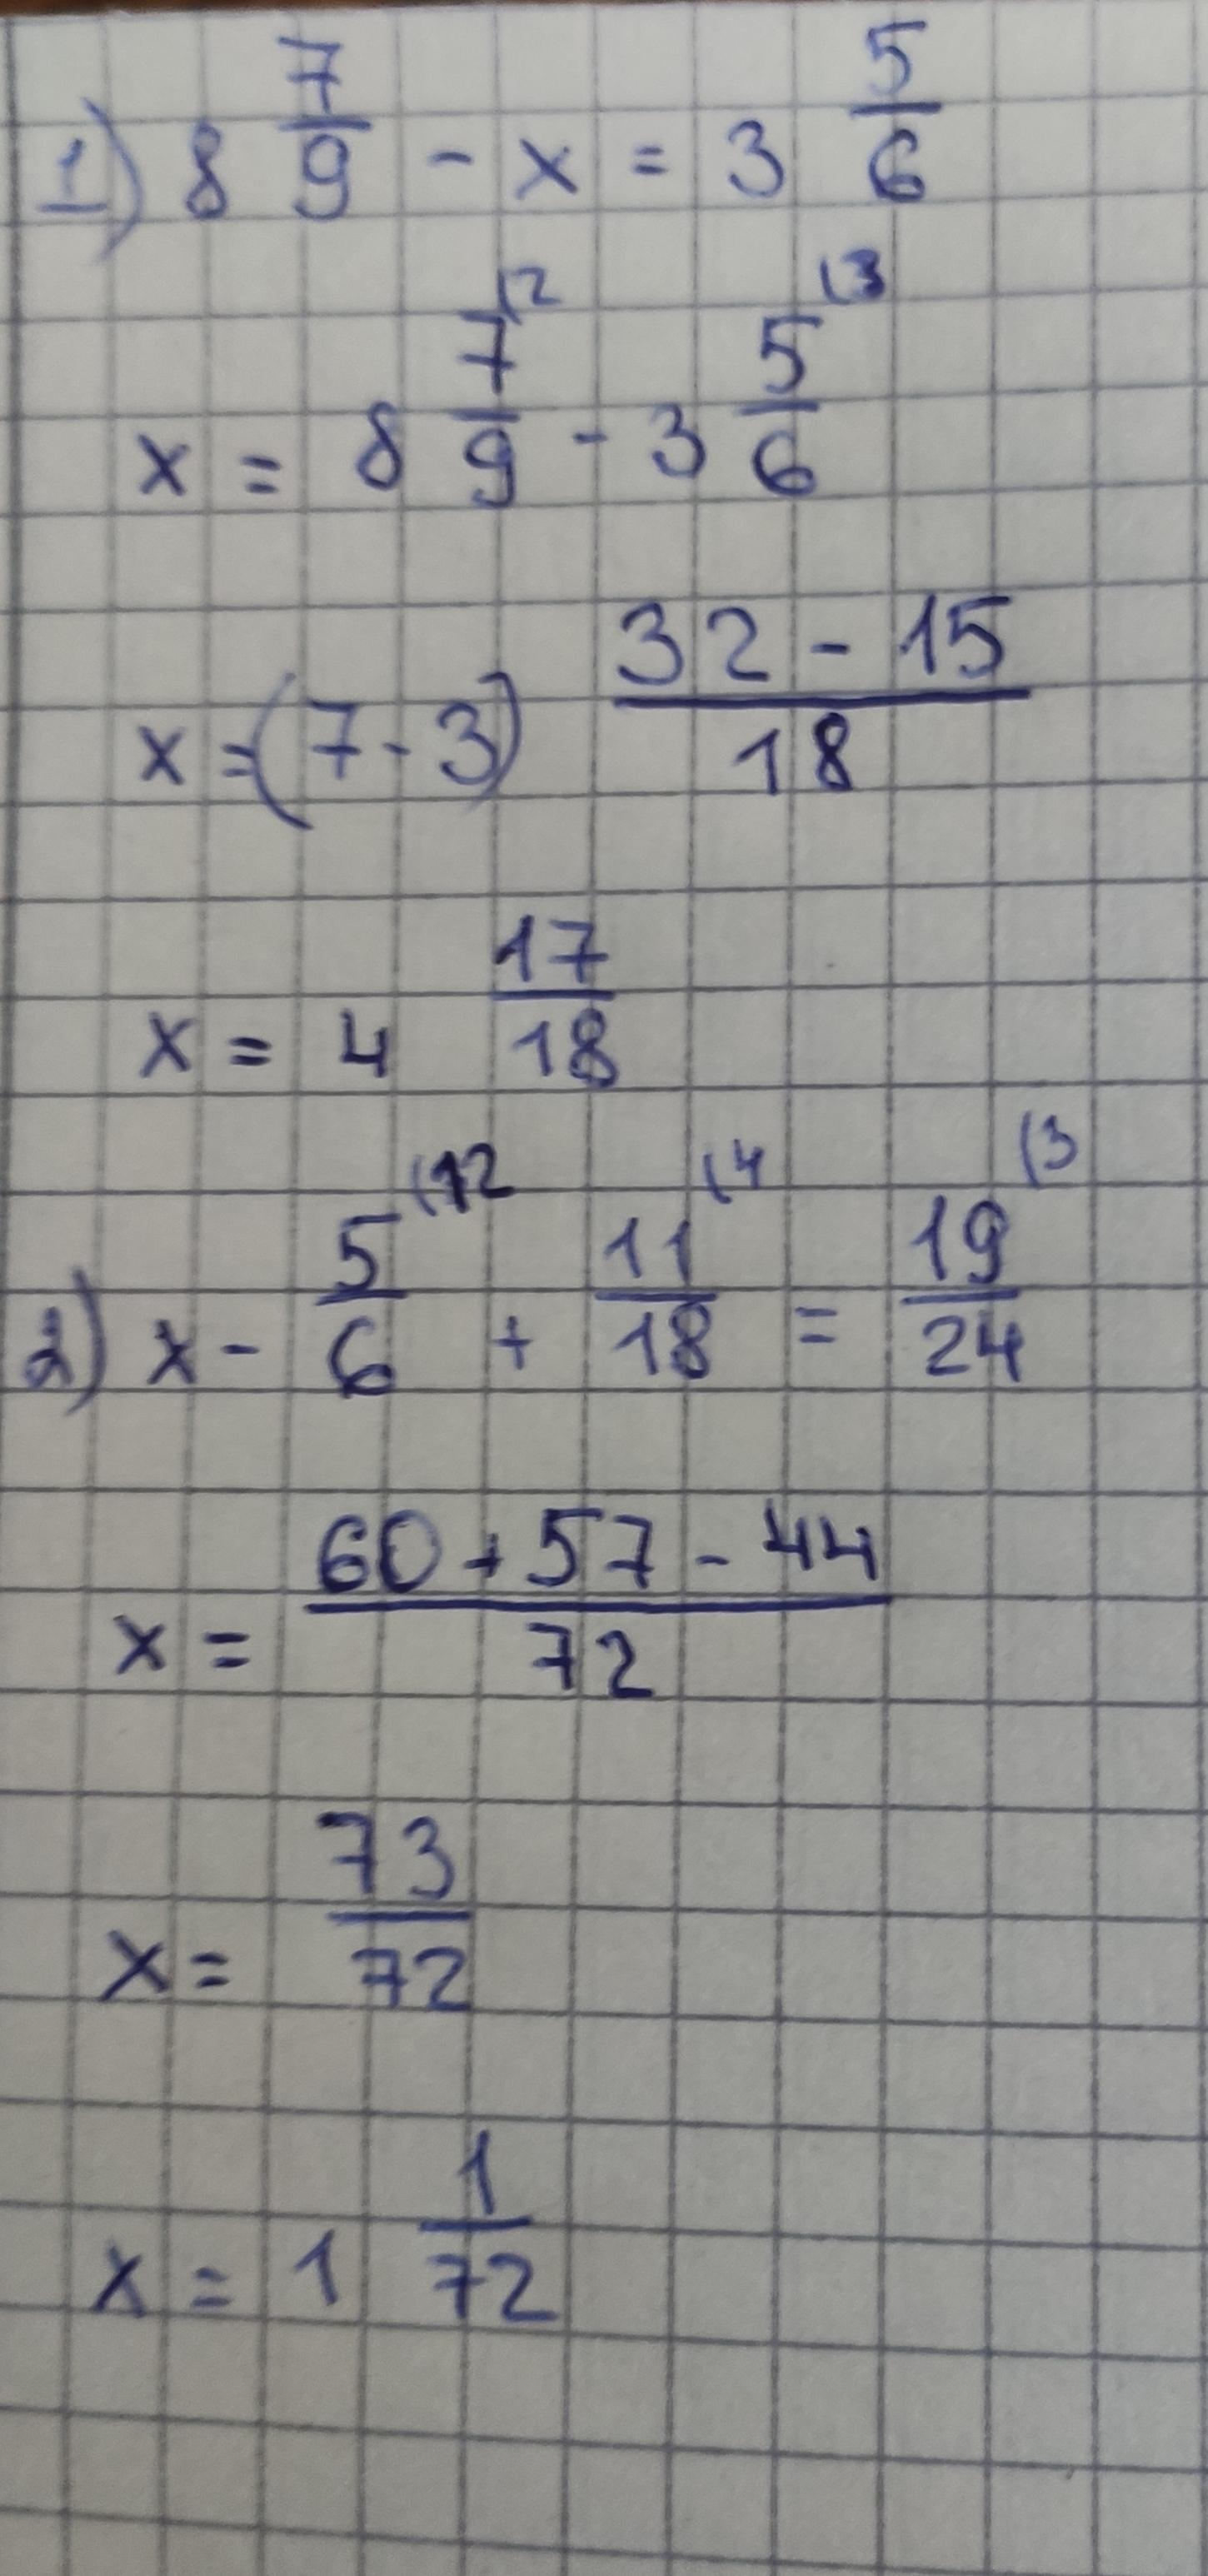 1) 8 7/9 - x = 3 5/6
x = 8 7/9 (2 - 3 5/6 (3
x = (7 - 3) 32 - 15/18
x = 4 17/18
2) x - 5/6 (12 + 11/18 (4 = 19/24 (3
x = 60 + 57 - 44/72
x = 73/72
x = 1 1/72